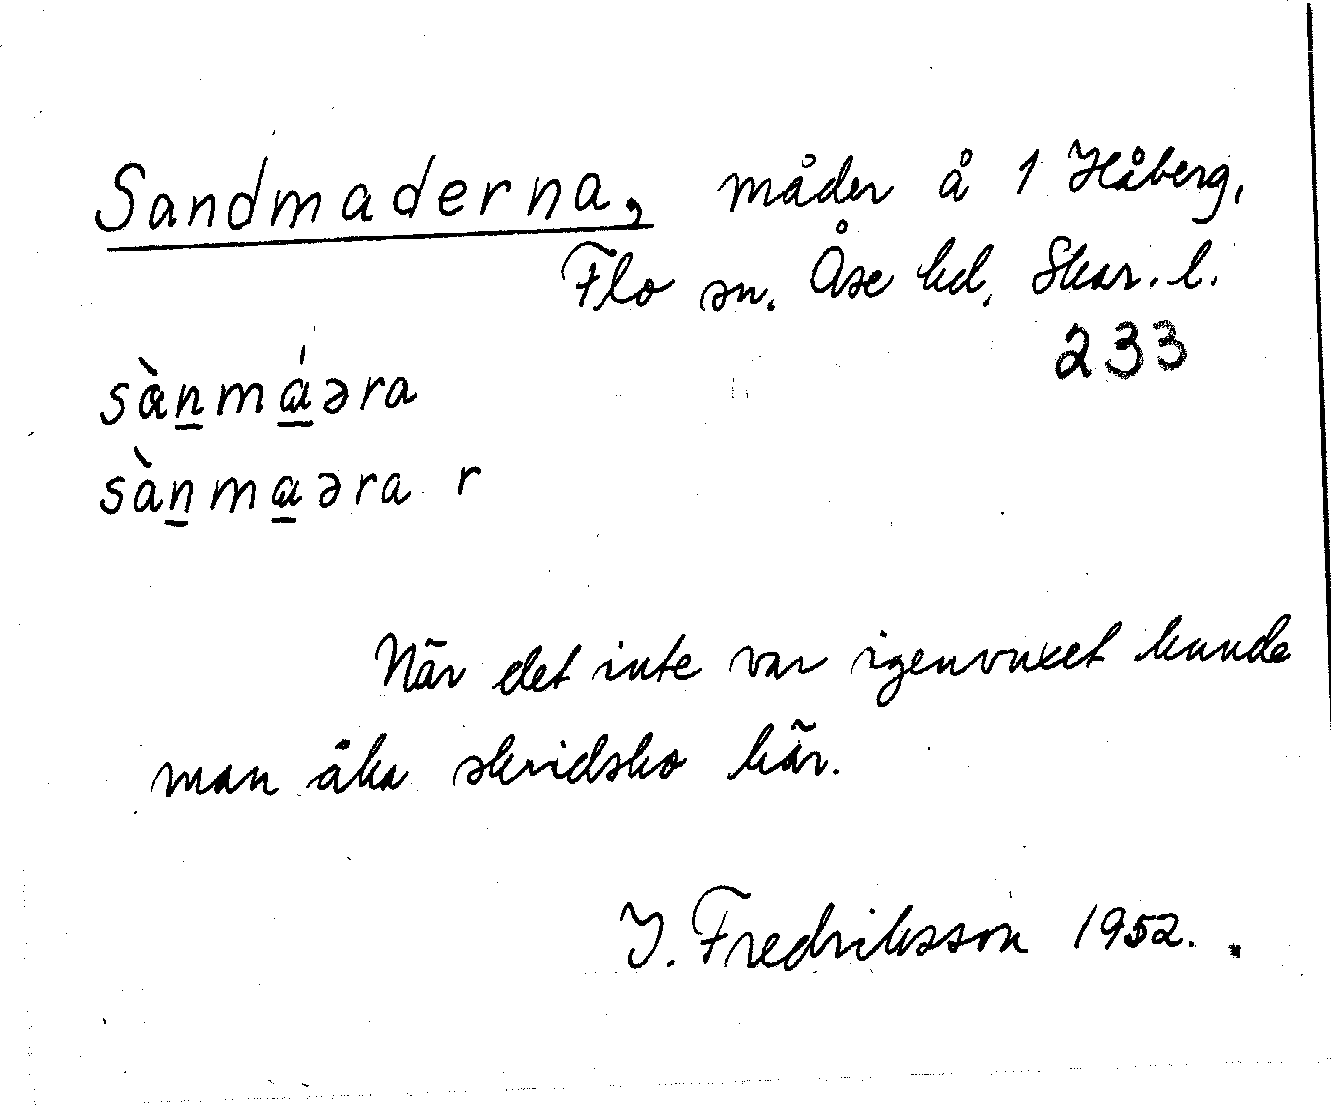 Sandmaderna, måder å 1 Håberg,
Flo sn. Åse hd, Skar. l.
233
sànmáəra
sànmaəra r
När det inte var igenvuxet kunde
man åka skridsko här.
I. Fredriksson 1952.